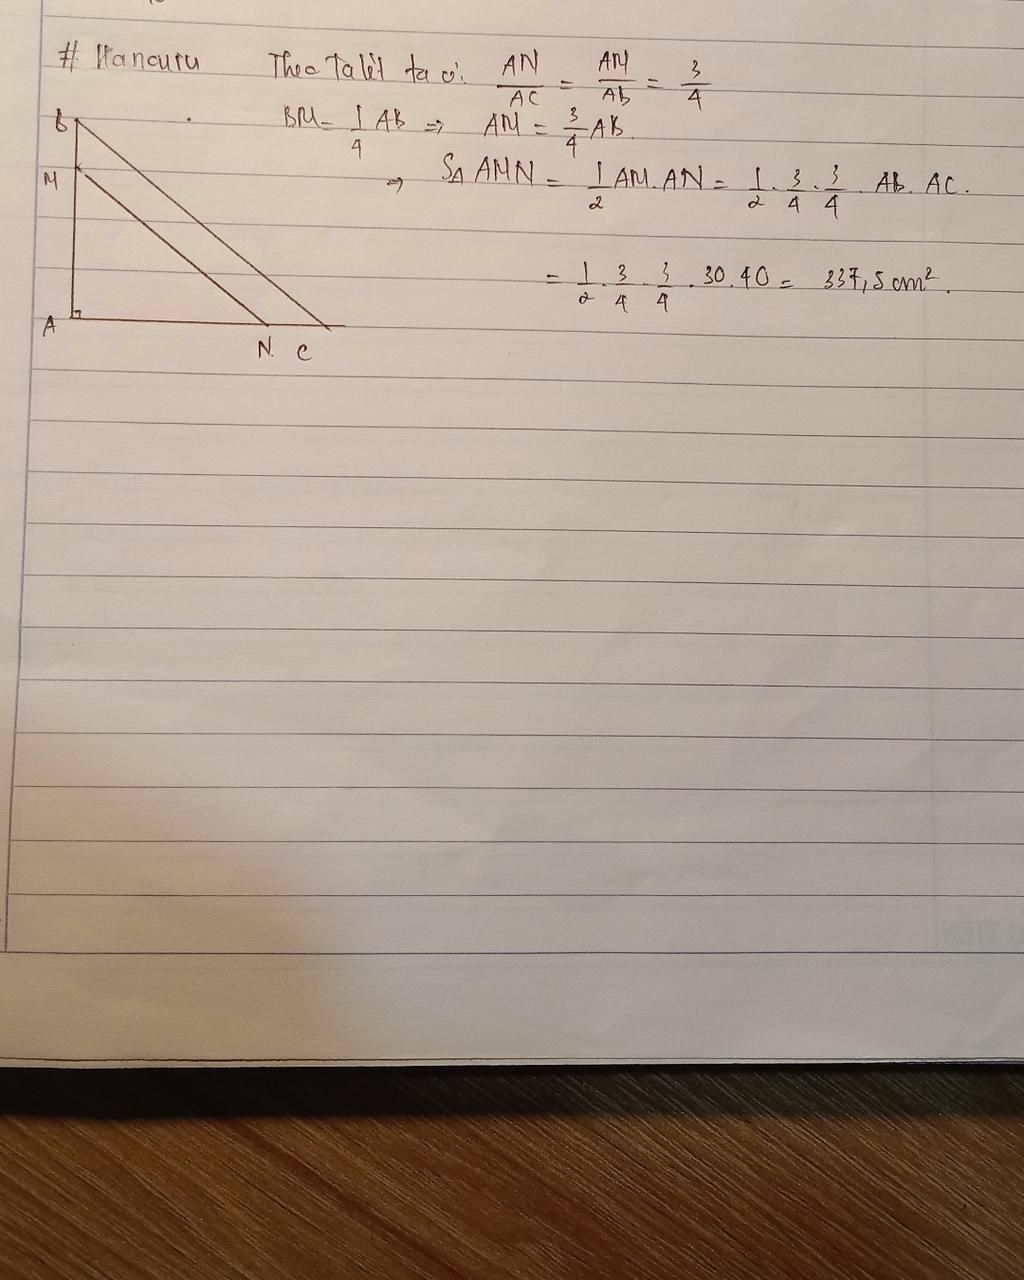 # Hancuru Theo Talét ta có: AN/AC = AM/AB = 3/4
B BM = 1/4 AB => AM = 3/4 AB.
M => S∆ AMN = 1/2 AM. AN = 1/2 . 3/4 . 3/4 . AB. AC.
= 1/2 . 3/4 . 3/4 . 30. 40 = 337,5 cm².
A
N. C